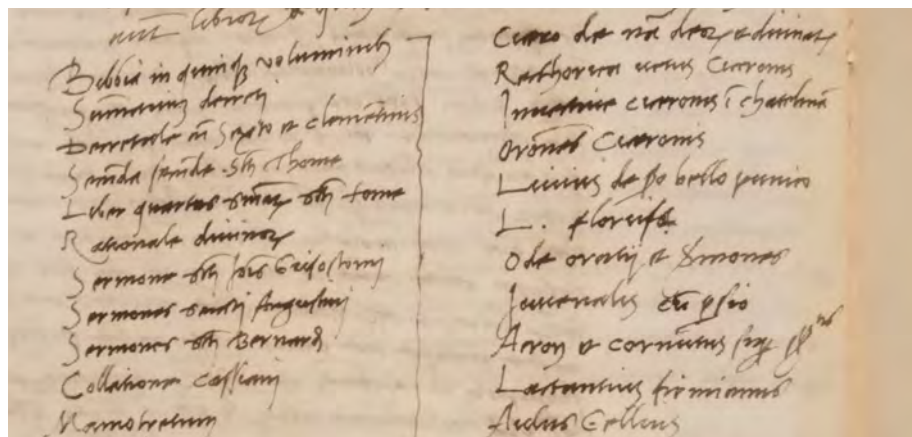 libros
Bibbia in quinq voluminib
Sumarium decreti
Decretale cu Sexto et clementinis
Secunda secunde Sti Thome
Liber quartus Sti tome
Rationale divinor
Sermone Sti Joīs Grisostomi
Sermones Sancti Augustini
Sermones Sti Bernardi
Collatione Cassiani
Mamotretum
Cicero de nā deor et divinat
Rethorica vetus Ciceronis
Invective ciceronis ī chatelinā
Orōnes Ciceronis
Livius de po bello punico
L. florus
Ode oratij et Smones
Juvenalis cū psio
Acron et cornutus
Lactantius firmianus
Aulus Gellius